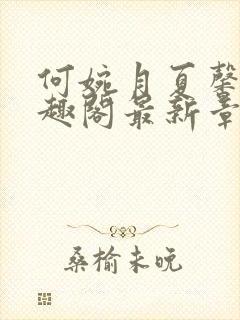 何婉月夏馨
趣阁最新章
桑榆未晚